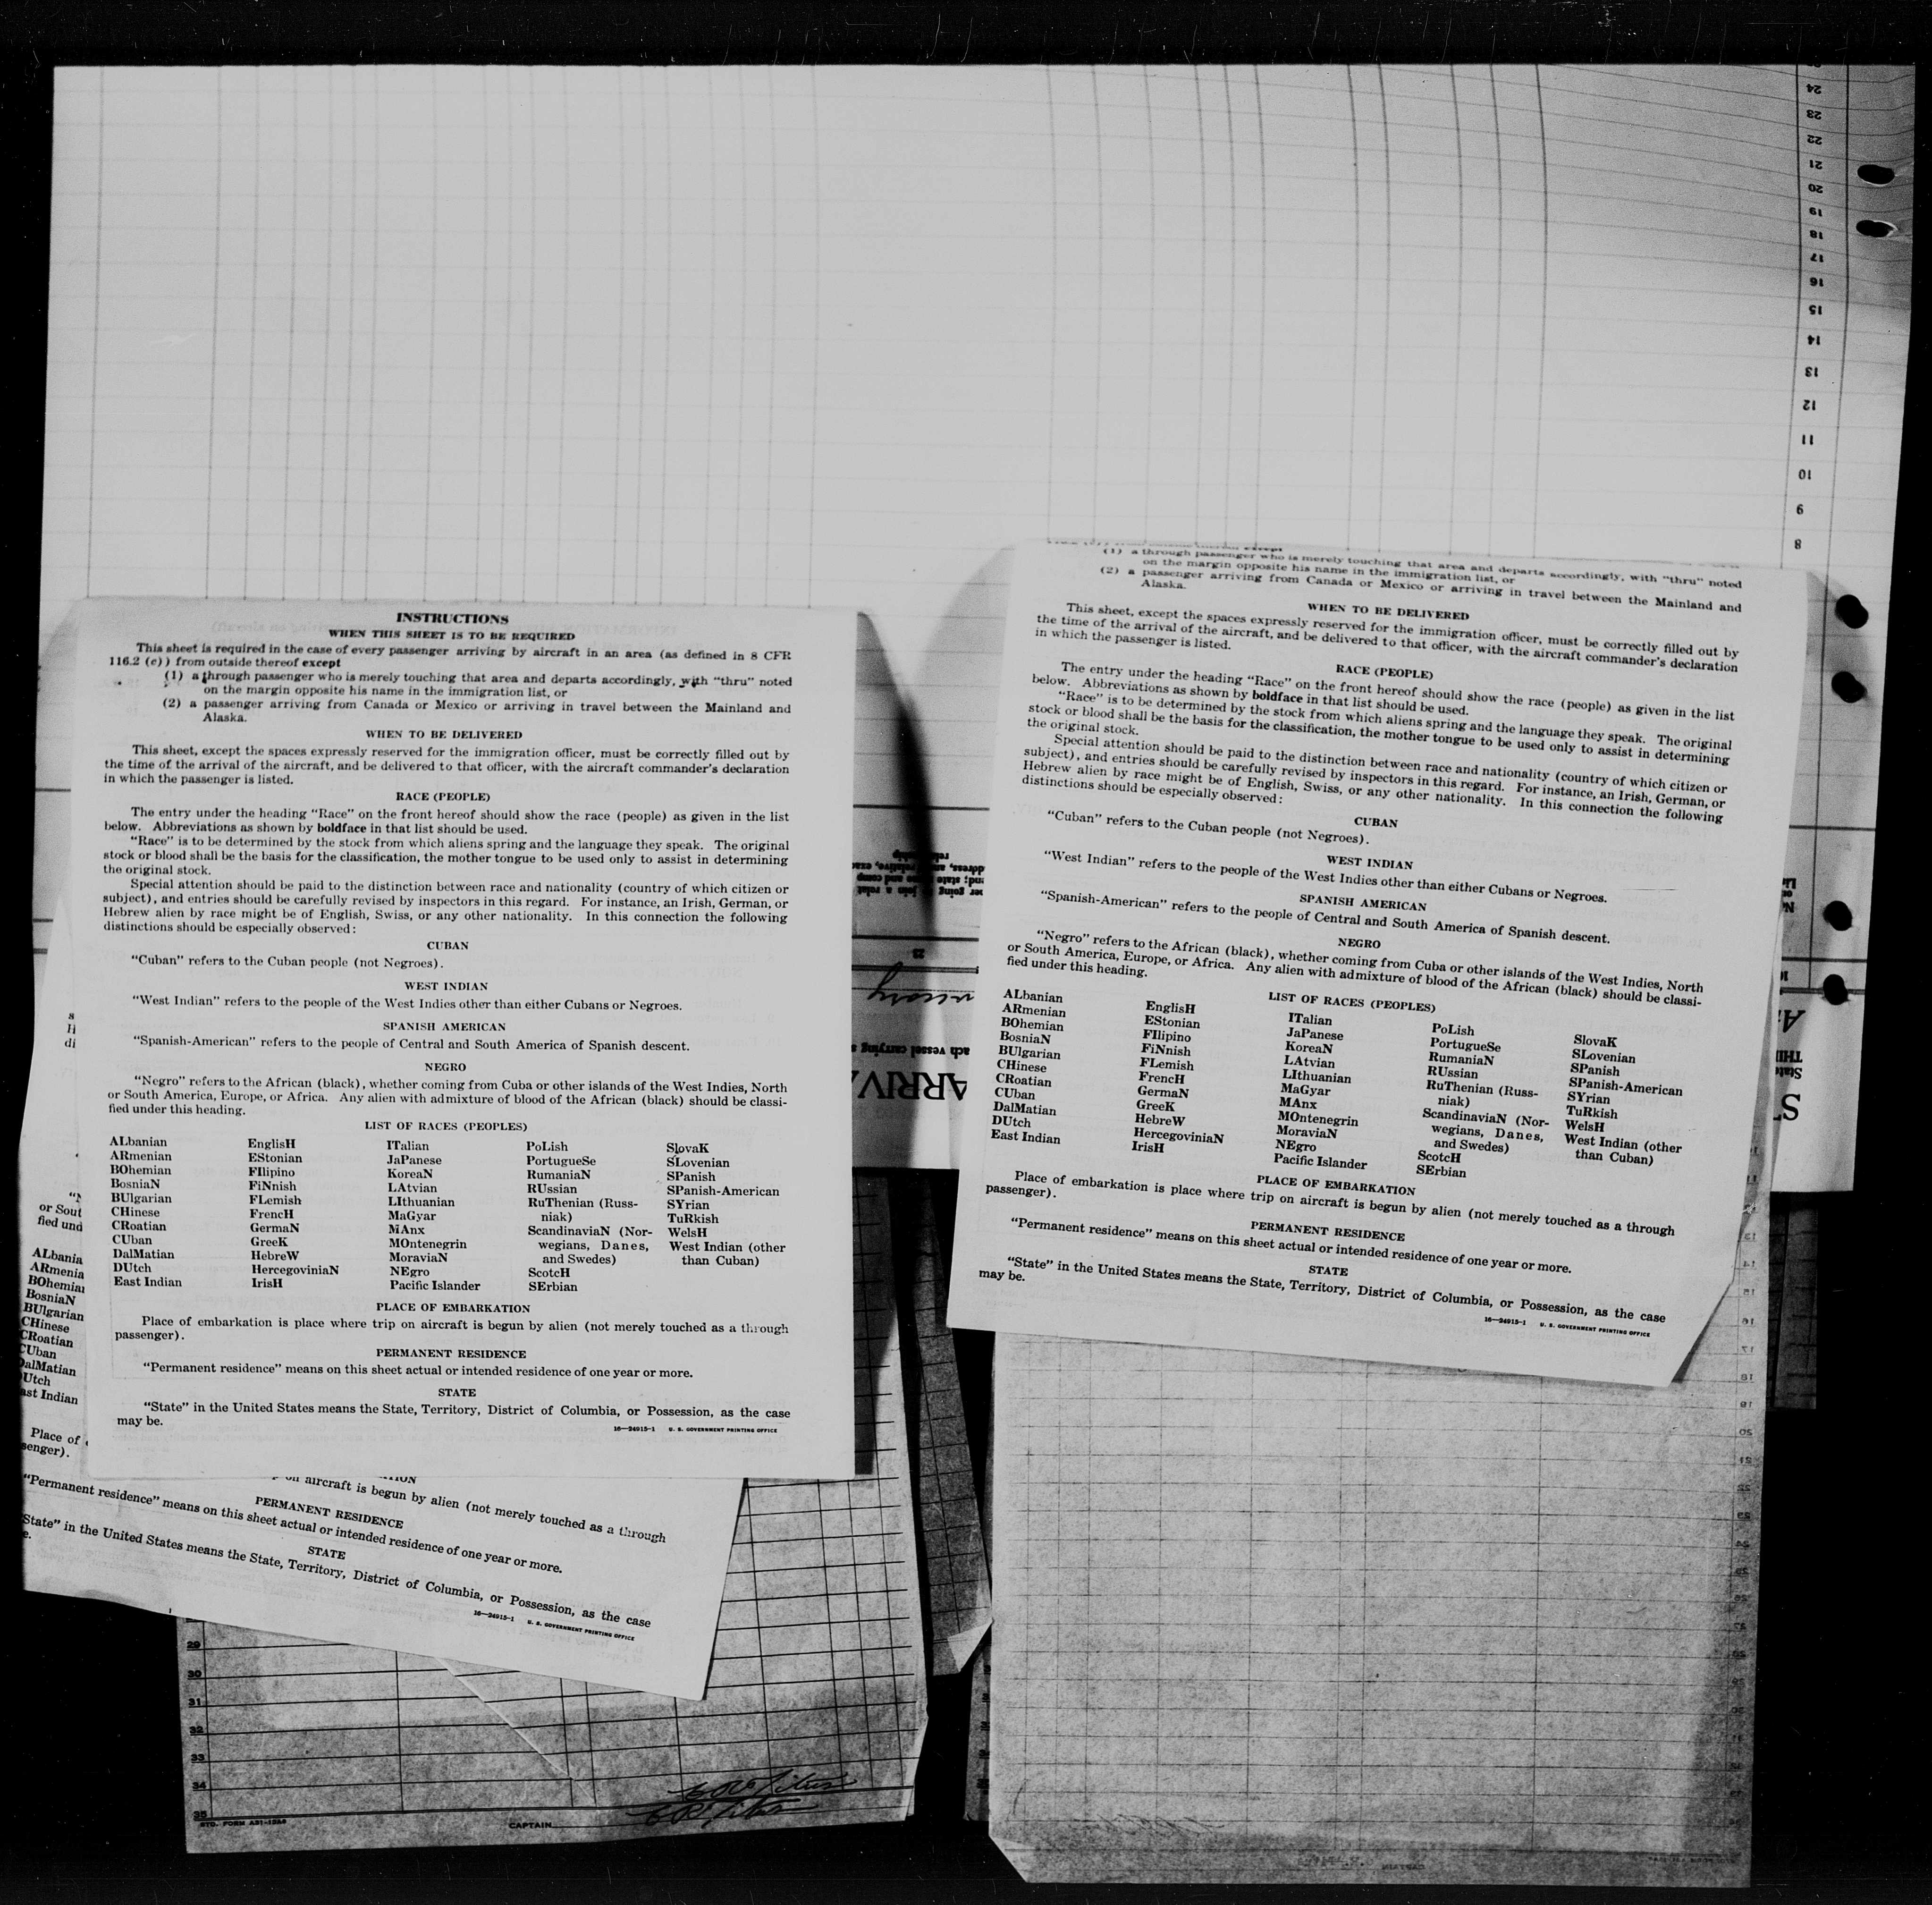 INSTRUCTIONS
WHEN THIS SHEET IS TO BE REQUIRED
This sheet is required in the case of every passenger arriving by aircraft in an area (as defined in 8 CFR
116.2 (e)) from outside thereof except
(1) a through passenger who is merely touching that area and departs accordingly, with "thru" noted
on the margin opposite his name in the immigration list, or
(2) a passenger arriving from Canada or Mexico or arriving in travel between the Mainland and
Alaska.
WHEN TO BE DELIVERED
This sheet, except the spaces expressly reserved for the immigration officer, must be correctly filled out by
the time of the arrival of the aircraft, and be delivered to that officer, with the aircraft commander's declaration
in which the passenger is listed.
RACE (PEOPLE)
The entry under the heading "Race" on the front hereof should show the race (people) as given in the list
below. Abbreviations as shown by boldface in that list should be used.
"Race" is to be determined by the stock from which aliens spring and the language they speak. The original
stock or blood shall be the basis for the classification, the mother tongue to be used only to assist in determining
the original stock.
Special attention should be paid to the distinction between race and nationality (country of which citizen or
subject), and entries should be carefully revised by inspectors in this regard. For instance, an Irish, German, or
Hebrew alien by race might be of English, Swiss, or any other nationality. In this connection the following
distinctions should be especially observed:
CUBAN
"Cuban" refers to the Cuban people (not Negroes).
WEST INDIAN
"West Indian" refers to the people of the West Indies other than either Cubans or Negroes.
SPANISH AMERICAN
"Spanish-American" refers to the people of Central and South America of Spanish descent.
NEGRO
"Negro" refers to the African (black), whether coming from Cuba or other islands of the West Indies, North
or South America, Europe, or Africa. Any alien with admixture of blood of the African (black) should be classi-
fied under this heading.
LIST OF RACES (PEOPLES)
ALbanian
ARmenian
BOhemian
BosniaN
BUlgarian
CHinese
CRoatian
CUban
DalMatian
DUtch
East Indian
EnglisH
EStonian
FIlipino
FiNnish
FLemish
FrencH
GermaN
GreeK
HebreW
HercegoviniaN
IrisH
ITalian
JaPanese
KoreaN
LAtvian
LIthuanian
MaGyar
MAnx
MOntenegrin
MoraviaN
NEgro
Pacific Islander
PoLish
PortugueSe
RumaniaN
RUssian
RuThenian (Russ-
niak)
ScandinaviaN (Nor-
wegians, Danes,
and Swedes)
ScotcH
SErbian
SlovaK
SLovenian
SPanish
SPanish-American
SYrian
TuRkish
WelsH
West Indian (other
than Cuban)
PLACE OF EMBARKATION
Place of embarkation is place where trip on aircraft is begun by alien (not merely touched as a through
passenger).
PERMANENT RESIDENCE
"Permanent residence" means on this sheet actual or intended residence of one year or more.
STATE
"State" in the United States means the State, Territory, District of Columbia, or Possession, as the case
may be.
16—24915-1 U. S. GOVERNMENT PRINTING OFFICE
(1) a through passenger who is merely touching that area and departs accordingly, with "thru" noted
on the margin opposite his name in the immigration list, or
(2) a passenger arriving from Canada or Mexico or arriving in travel between the Mainland and
Alaska.
WHEN TO BE DELIVERED
This sheet, except the spaces expressly reserved for the immigration officer, must be correctly filled out by
the time of the arrival of the aircraft, and be delivered to that officer, with the aircraft commander's declaration
in which the passenger is listed.
RACE (PEOPLE)
The entry under the heading "Race" on the front hereof should show the race (people) as given in the list
below. Abbreviations as shown by boldface in that list should be used.
"Race" is to be determined by the stock from which aliens spring and the language they speak. The original
stock or blood shall be the basis for the classification, the mother tongue to be used only to assist in determining
the original stock.
Special attention should be paid to the distinction between race and nationality (country of which citizen or
subject), and entries should be carefully revised by inspectors in this regard. For instance, an Irish, German, or
Hebrew alien by race might be of English, Swiss, or any other nationality. In this connection the following
distinctions should be especially observed:
CUBAN
"Cuban" refers to the Cuban people (not Negroes).
WEST INDIAN
"West Indian" refers to the people of the West Indies other than either Cubans or Negroes.
SPANISH AMERICAN
"Spanish-American" refers to the people of Central and South America of Spanish descent.
NEGRO
"Negro" refers to the African (black), whether coming from Cuba or other islands of the West Indies, North
or South America, Europe, or Africa. Any alien with admixture of blood of the African (black) should be classi-
fied under this heading.
LIST OF RACES (PEOPLES)
ALbanian
ARmenian
BOhemian
BosniaN
BUlgarian
CHinese
CRoatian
CUban
DalMatian
DUtch
East Indian
EnglisH
EStonian
FIlipino
FiNnish
FLemish
FrencH
GermaN
GreeK
HebreW
HercegoviniaN
IrisH
ITalian
JaPanese
KoreaN
LAtvian
LIthuanian
MaGyar
MAnx
MOntenegrin
MoraviaN
NEgro
Pacific Islander
PoLish
PortugueSe
RumaniaN
RUssian
RuThenian (Russ-
niak)
ScandinaviaN (Nor-
wegians, Danes,
and Swedes)
ScotcH
SErbian
SlovaK
SLovenian
SPanish
SPanish-American
SYrian
TuRkish
WelsH
West Indian (other
than Cuban)
PLACE OF EMBARKATION
Place of embarkation is place where trip on aircraft is begun by alien (not merely touched as a through
passenger).
PERMANENT RESIDENCE
"Permanent residence" means on this sheet actual or intended residence of one year or more.
STATE
"State" in the United States means the State, Territory, District of Columbia, or Possession, as the case
may be.
16—24915-1 U. S. GOVERNMENT PRINTING OFFICE
aircraft is begun by alien (not merely touched as a through
PERMANENT RESIDENCE
"Permanent residence" means on this sheet actual or intended residence of one year or more.
STATE
State" in the United States means the State, Territory, District of Columbia, or Possession, as the case
16—24915-1 U. S. GOVERNMENT PRINTING OFFICE
29
30
31
32
33
34
35
CAPTAIN
24
23
22
21
20
19
18
17
16
15
14
13
12
11
10
9
8